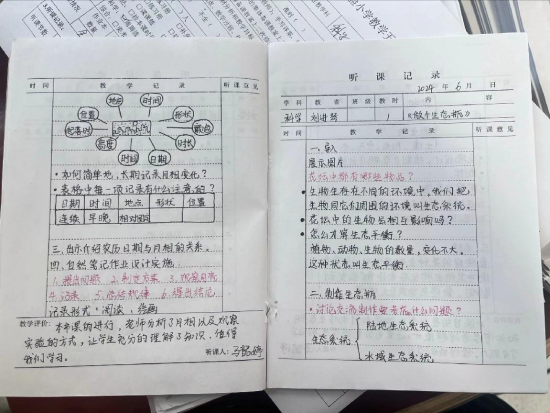 时间
教学记录
听课意见
地点
时间
形状
位置
日期
时间
• 如何简单地,长期记录月相变化?
• 表格中每一项记录有什么注意的?
日期 时间 地点 形状 位置
连续 早晚 相对固定
三、出示介绍农历日期与月相的关系。
四、自然笔记作业设计实施
1.提出问题 2.制定方案 3.观察月亮
4.记录 5.总结规律 6.提出结论
记录形式:阅读、绘画
教学评价:本节课的进行,老师分析了月相以及观察
实验的方式,让学生充分的理解了知识,值得
我们学习。
听课人:
听课记录
2024年6月 日
学科 教者 班级 课时 内容
科学 1 《做个生态瓶》
时间
教学记录
听课意见
一、导入
展示图片
花坛中都有哪些物品?
• 生物生存在不同的环境中,我们把
生物同它们周围的环境叫生态系统。
• 花坛中的生物长相互影响吗?
• 怎么才算生态平衡?
植物、动物、生物的数量,变化不大。
这种状态叫生态平衡。
二、制作生态瓶
• 讨论交流制作要考虑什么问题?
陆地生态系统
生态系统
水域生态系统